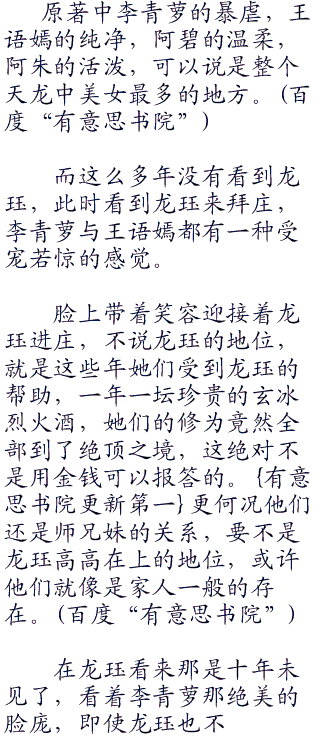 原著中李青萝的暴虐，王
语嫣的纯净，阿碧的温柔，
阿朱的活泼，可以说是整个
天龙中美女最多的地方。(百
度“有意思书院”)
而这么多年没有看到龙
珏，此时看到龙珏来拜庄，
李青萝与王语嫣都有一种受
宠若惊的感觉。
脸上带着笑容迎接着龙
珏进庄，不说龙珏的地位，
就是这些年她们受到龙珏的
帮助，一年一坛珍贵的玄冰
烈火酒，她们的修为竟然全
部到了绝顶之境，这绝对不
是用金钱可以报答的。{有意
思书院更新第一}更何况他们
还是师兄妹的关系，要不是
龙珏高高在上的地位，或许
他们就像是家人一般的存
在。(百度“有意思书院”)
在龙珏看来那是十年未
见了，看着李青萝那绝美的
脸庞，即使龙珏也不